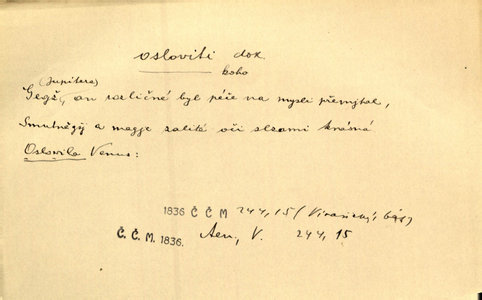 osloviti dok.
koho
(Jupitera)
Gegž, an rozličné byl péče na mysli přemýtal,
Smutněgší a magje zalité oči slzami krásná
Oslovila Venus:
1836 Č Č M 244, 15 (Vinařický, bás.)
Č. Č. M. 1836. Aen, V. 244, 15